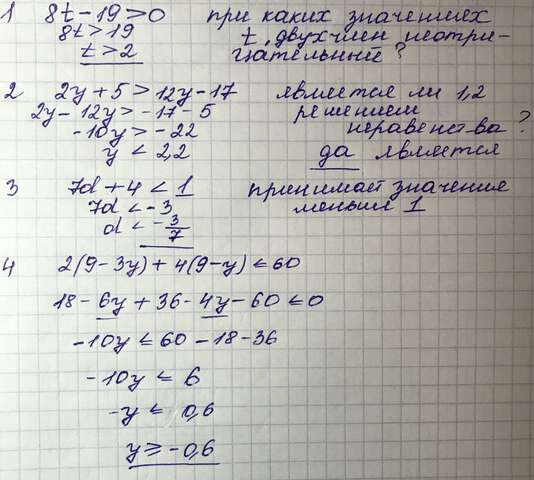 1 8t - 19 > 0 при каких значениях
8t > 19 t, двухчлен неотри-
t > 2 цательный?
2 2y + 5 > 12y - 17 является ли 1,2
2y - 12y > -17 - 5 решением
-10y > -22 неравенства?
y < 2,2 да является
3 7d + 4 < 1 принимает значения
7d < -3 меньше 1
d < -3/7
4 2(9 - 3y) + 4(9 - y) ≤ 60
18 - 6y + 36 - 4y - 60 ≤ 0
-10y ≤ 60 - 18 - 36
-10y ≤ 6
-y ≤ 0,6
y ≥ -0,6